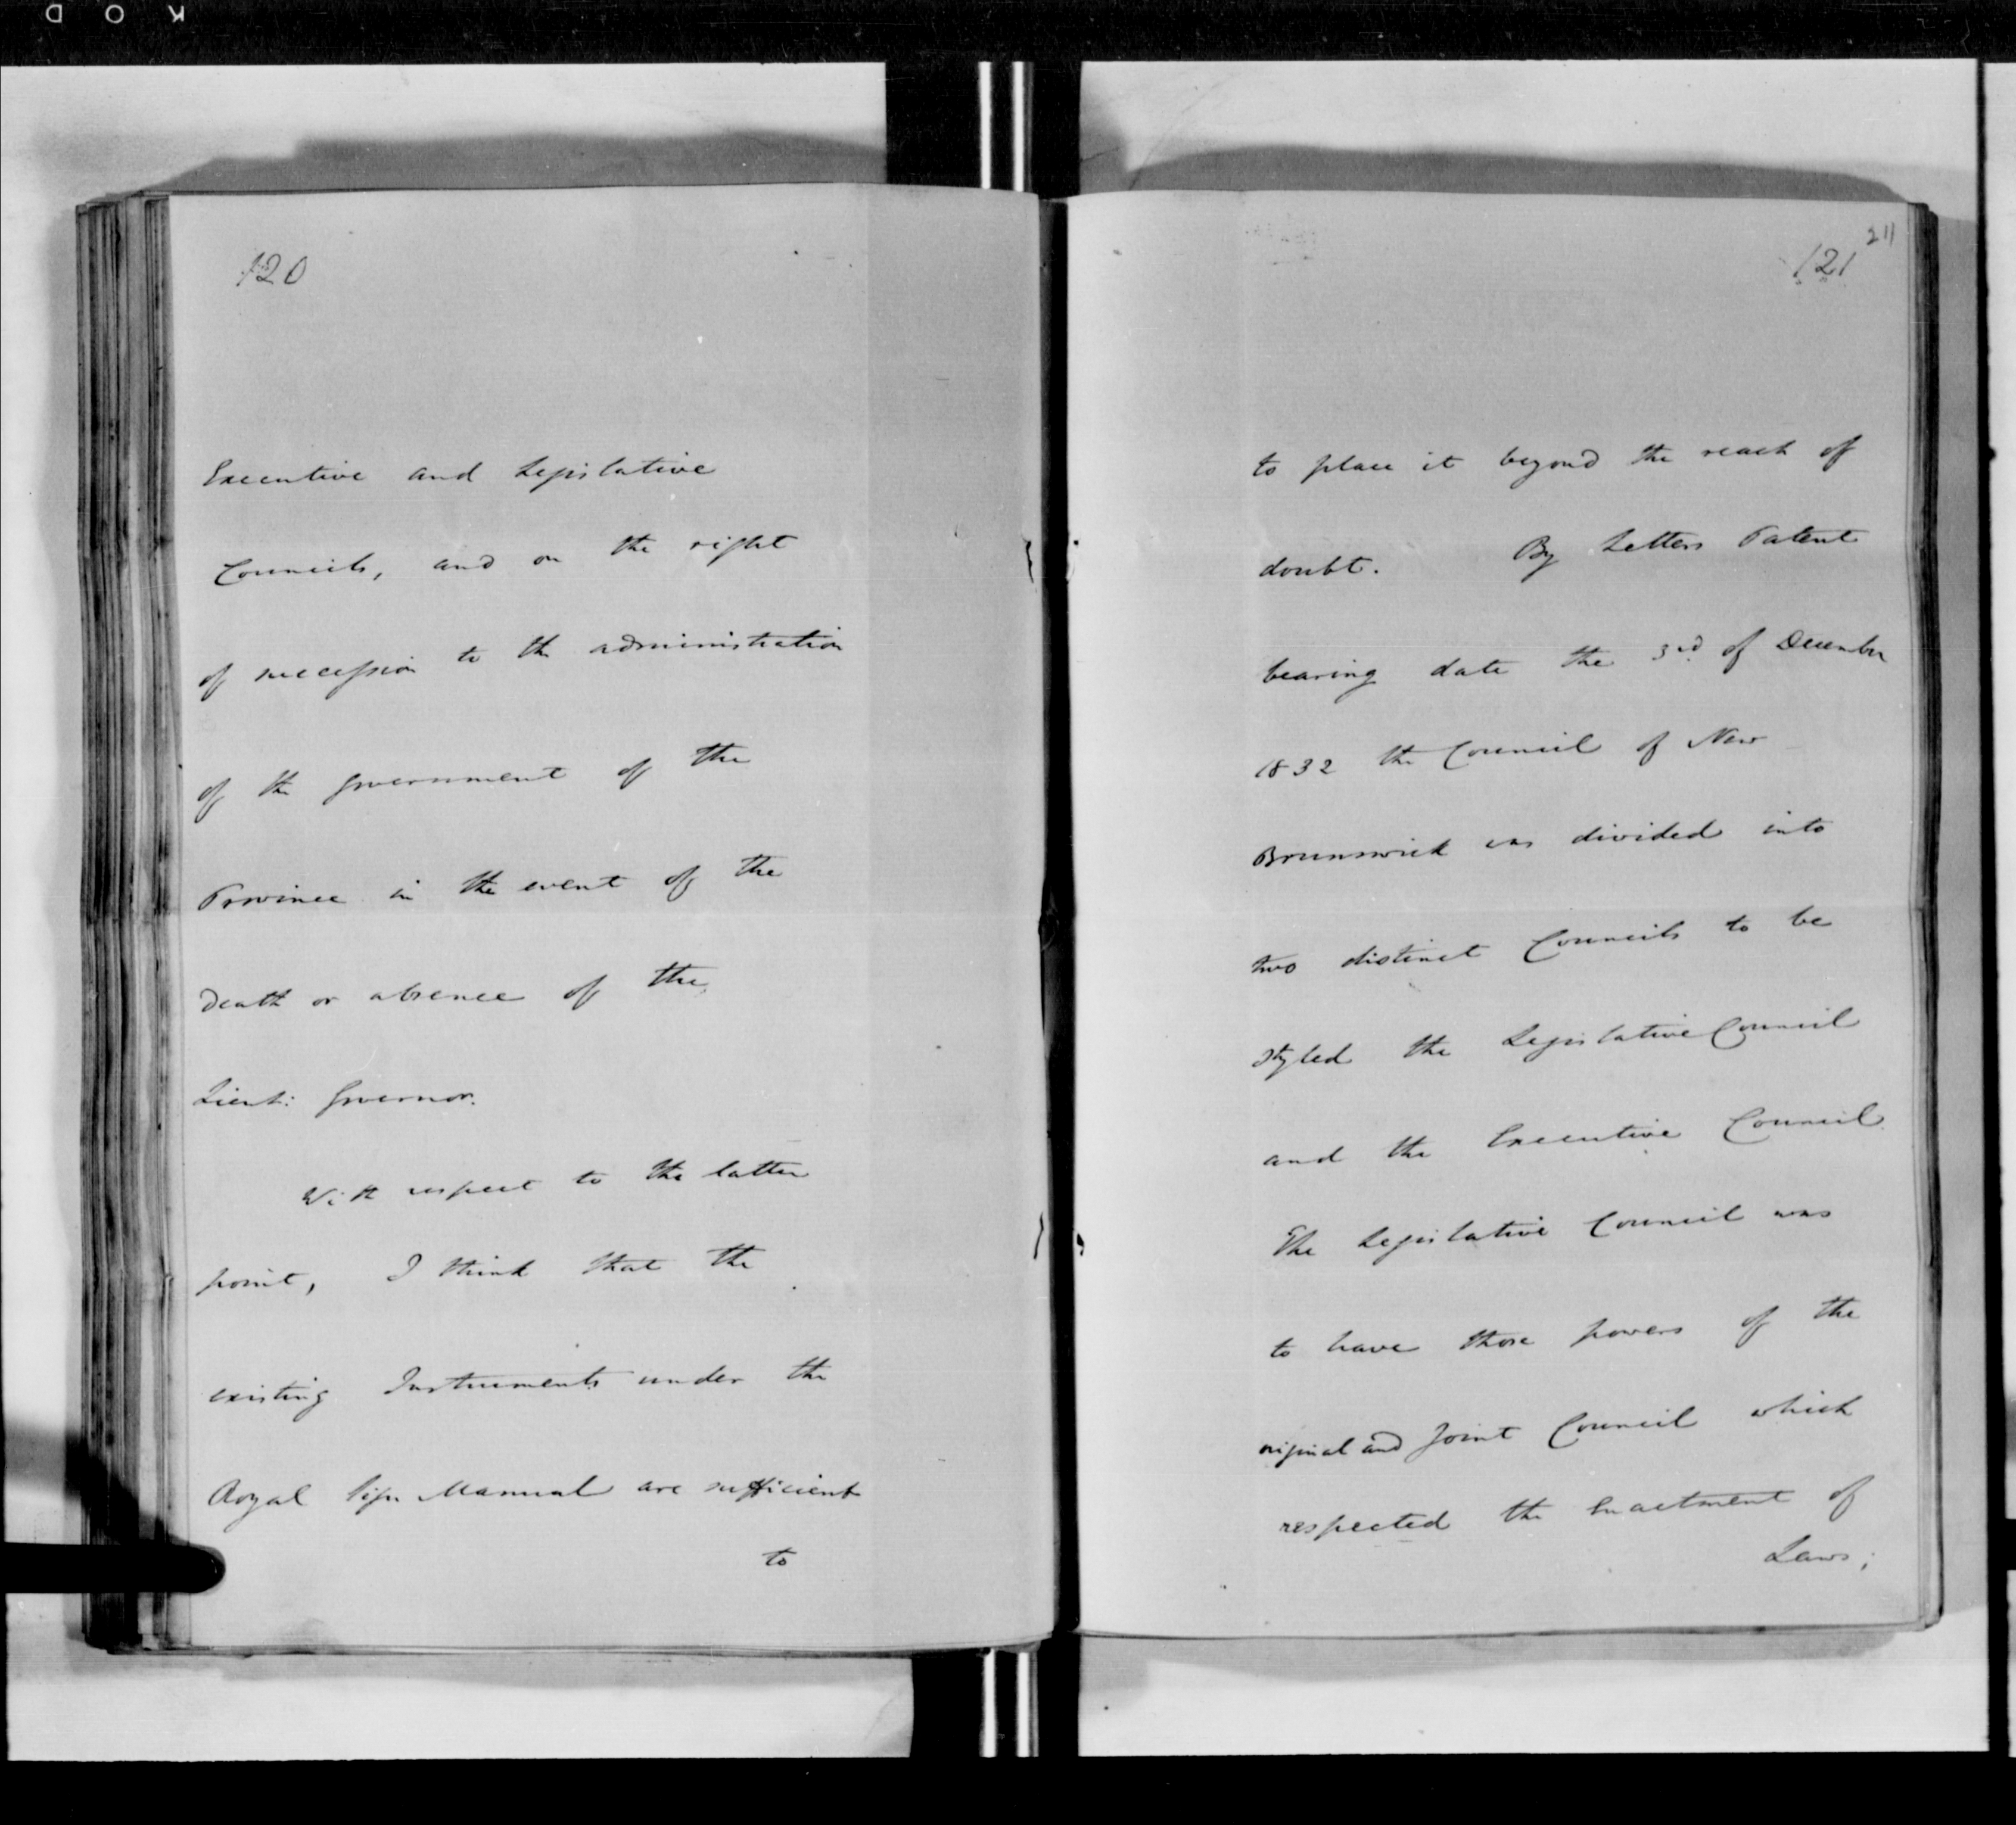 KOD
120
Executive and Legislative
Councils, and on the right
of succession to the administration
of the Government of the
Province in the event of the
Death or absence of the
Lieut: Governor.
With respect to the latter
point, I think that the
existing Instruments under the
Royal Sign Manual are sufficient
to
211
121
to place it beyond the reach of
doubt. By Letters Patent
bearing date the 3rd of December
1832 the Council of New
Brunswick was divided into
two distinct Councils to be
styled the Legislative Council
and the Executive Council.
The Legislative Council was
to have those powers of the
original and Joint Council which
respected the Enactment of
Laws;